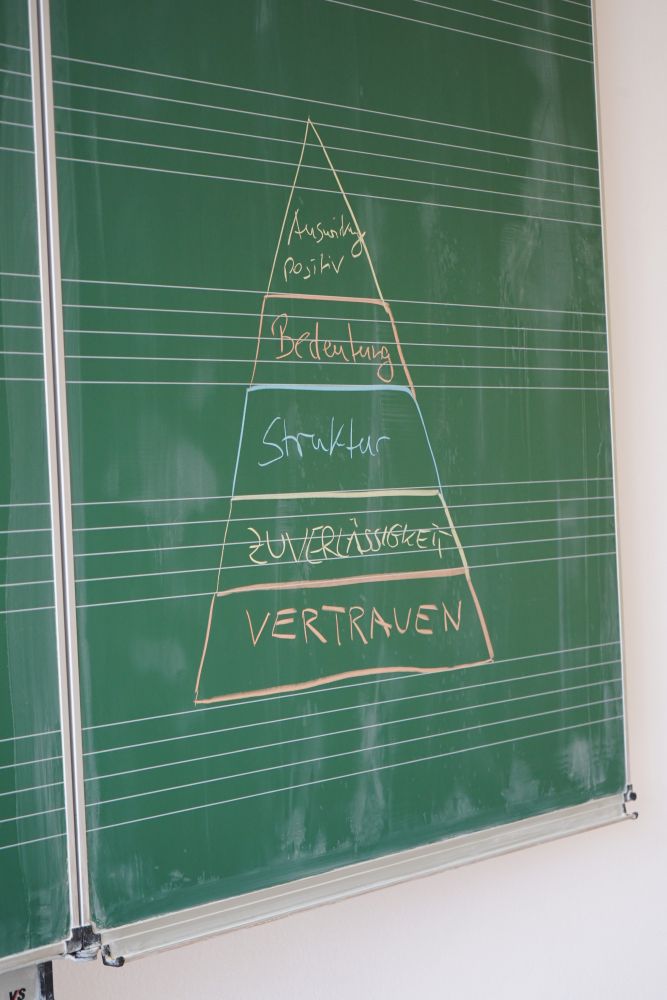 Auswirkg
positiv
Bedeutung
Struktur
ZUVERLÄSSIGKEIT
VERTRAUEN
VS